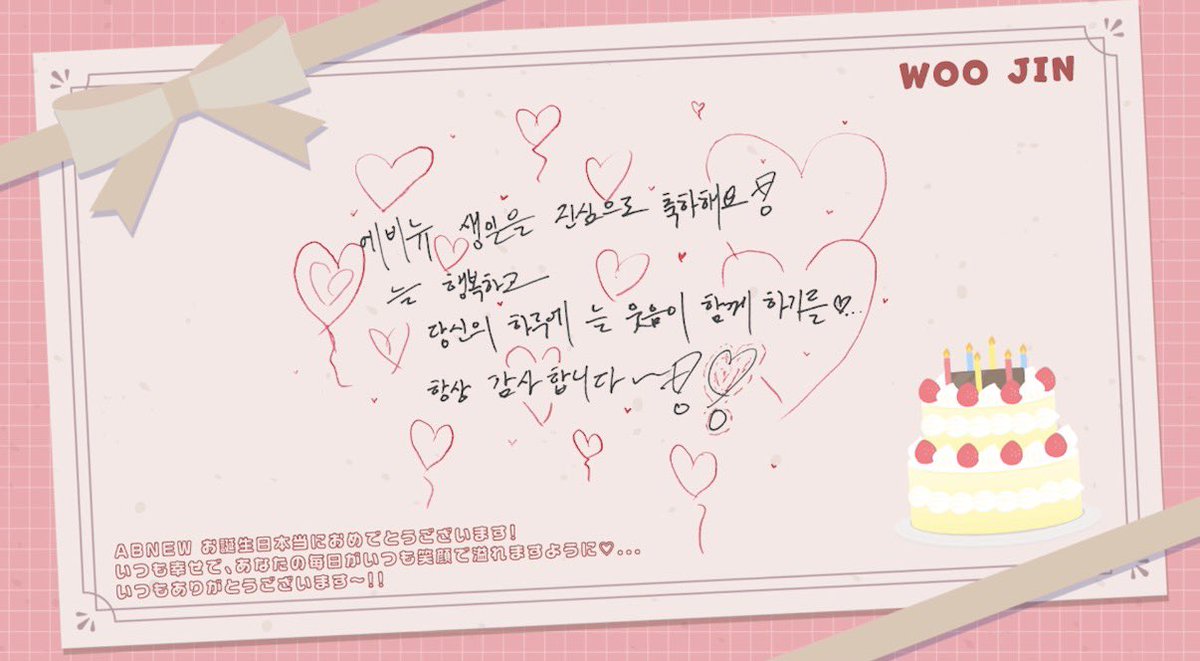 WOO JIN
에비뉴 생일을 진심으로 축하해요!
늘 행복하고
당신의 하루에 늘 웃음이 함께 하기를♡...
항상 감사합니다~!!
ABNEW お誕生日本当におめでとうございます!
いつも幸せで、あなたの毎日がいつも笑顔で溢れますように♡...
いつもありがとうございます~!!